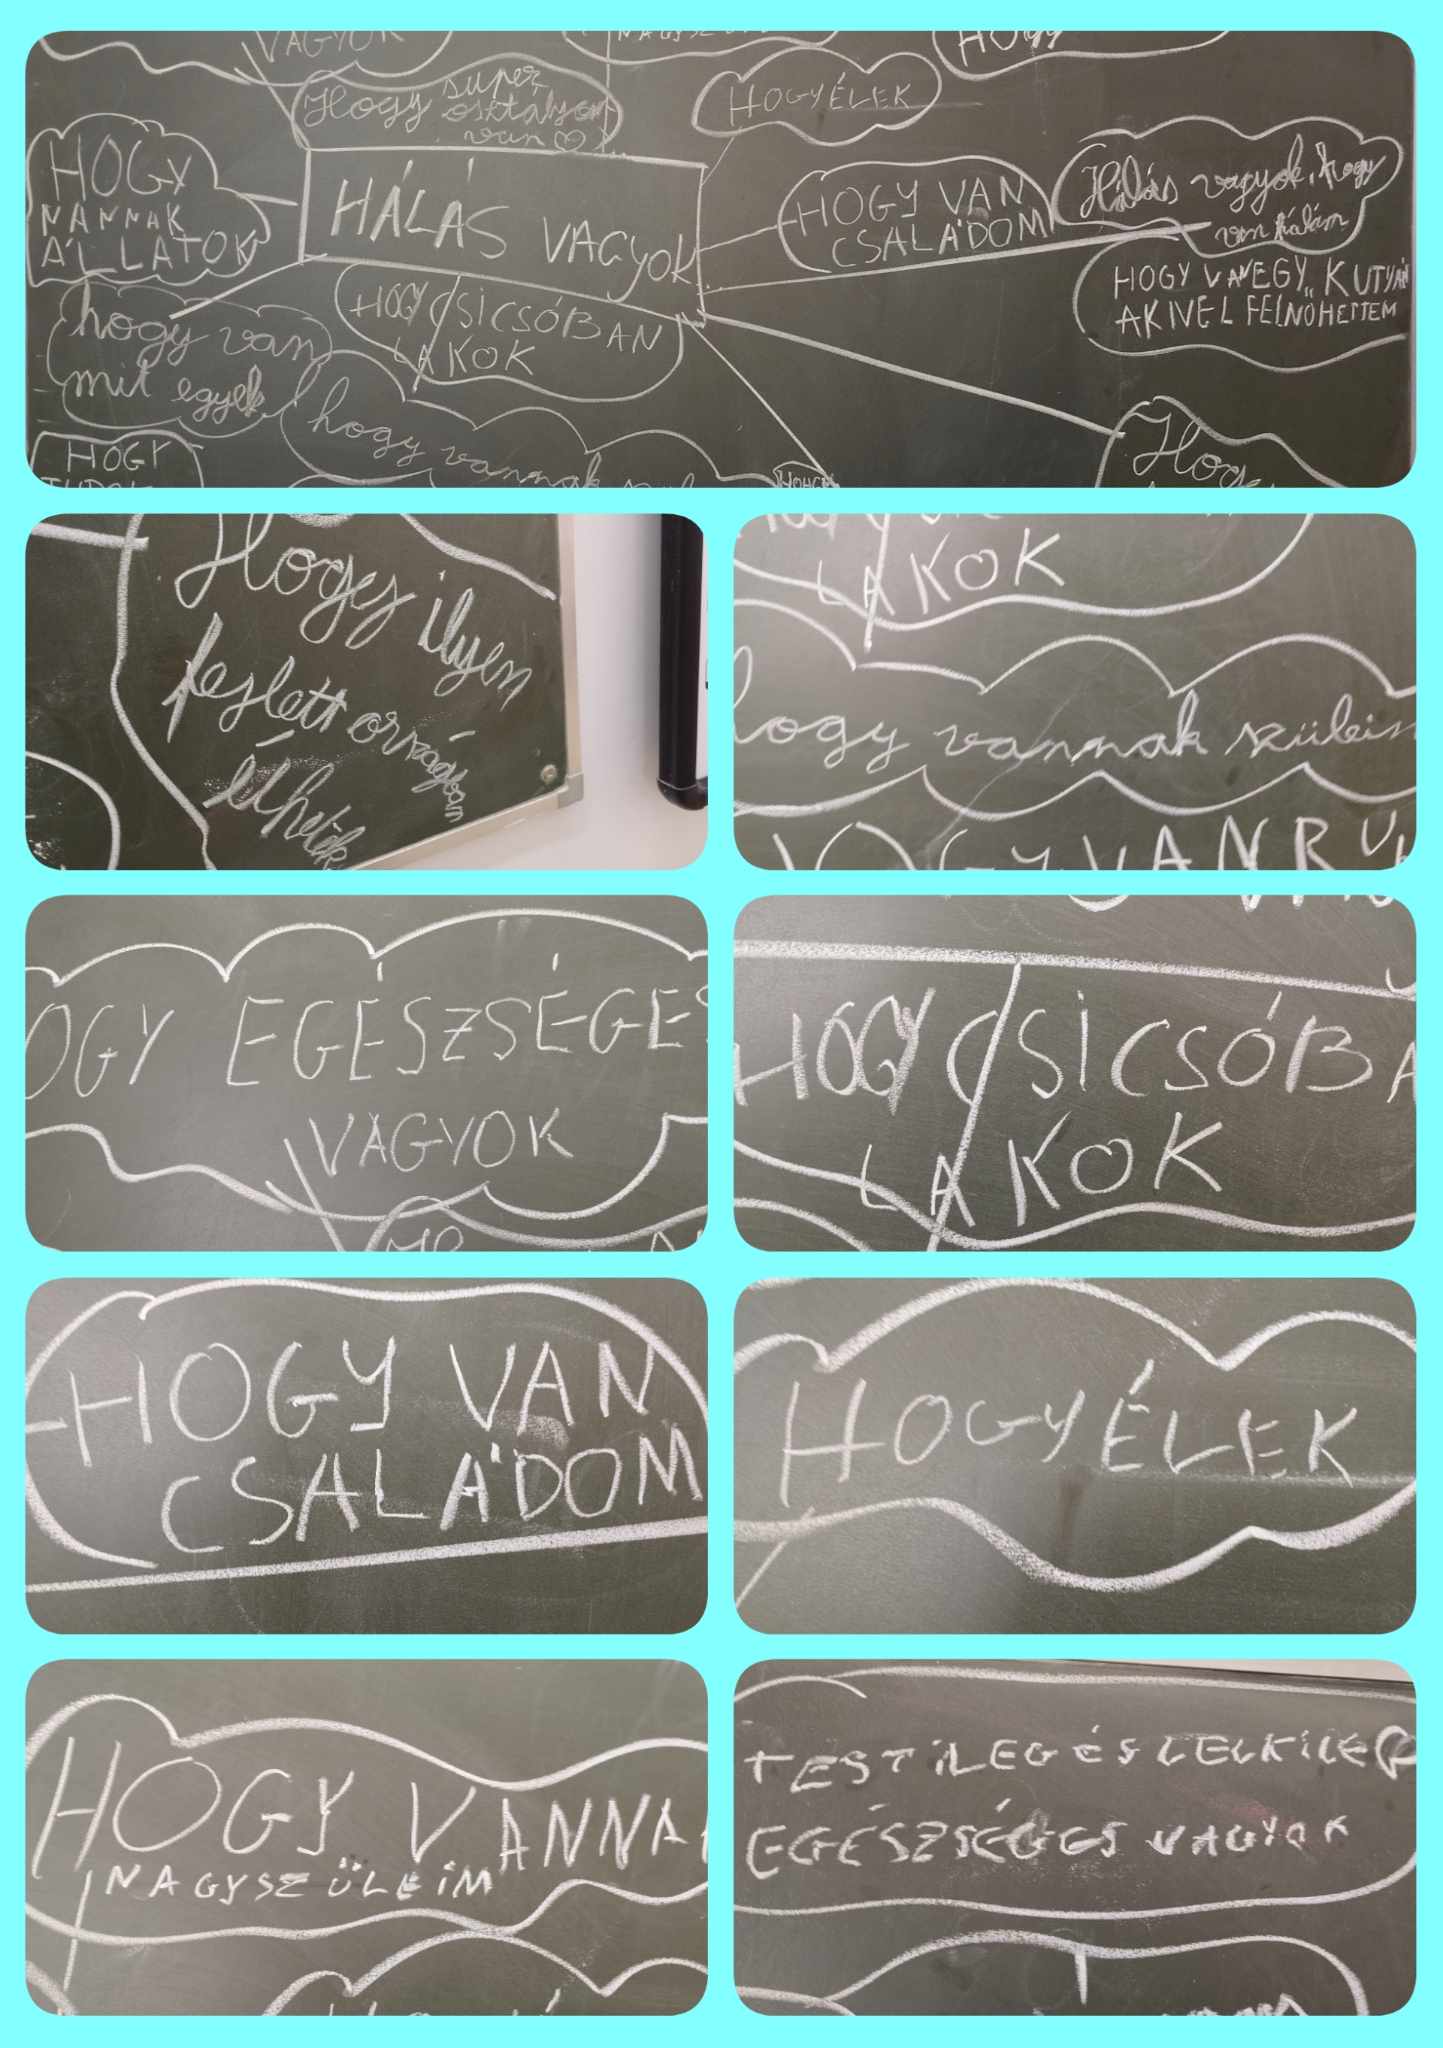 VAGYOK
HOGY
Hogy super
osztályom
van
HOGY ÉLEK
HOGY
VANNAK
ÁLLATOK
HÁLÁS VAGYOK
HOGY VAN
CSALÁDOM
Hálás vagyok, hogy
van hálám
HOGY VAN EGY KUTYÁM
AKIVEL FELNŐHETTEM
HOGY CSICSÓBAN
LAKOK
hogy van
mit egyek
hogy vannak
HOGY
Hogy ilyen
fejlett országban
élhetek
LAKOK
hogy vannak szüleim
HOGY VAN RU
OGY EGÉSZSÉGES
VAGYOK
HOGY CSICSÓBA
LAKOK
HOGY VAN
CSALÁDOM
HOGY ÉLEK
HOGY VANNA
NAGYSZÜLEIM
TESTILEG ÉS LELKILEG
EGÉSZSÉGES VAGYOK